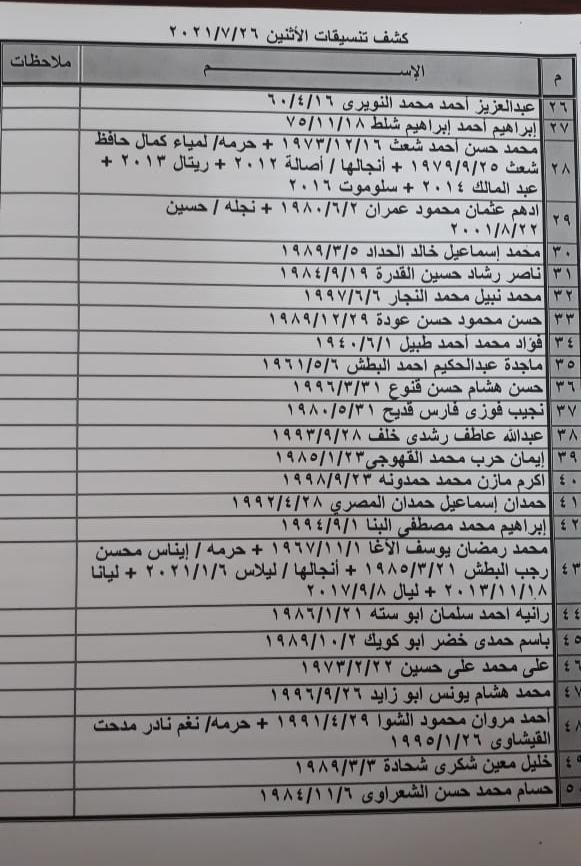 كشف تنسيقات الأثنين ٢٠٢١/٧/٢٦
م الإســــم ملاحظات
٢٦ عبدالعزيز أحمد محمد النويرى ٦٠/٤/١٦
٢٧ إبراهيم أحمد إبراهيم شلط ٧٥/١١/١٨
٢٨ محمد حسن أحمد شعث ١٩٧٣/١٢/١٦ + حرمه/ لمياء كمال حافظ
شعث ١٩٧٩/٩/٢٥ + أنجالها / أصالة ٢٠١٢ + ريتال ٢٠١٣ +
عبد المالك ٢٠١٤ + سلوموت ٢٠١٦
٢٩ ادهم عثمان محمود عمران ١٩٨٠/٦/٢ + نجله / حسين
٢٠٠١/٨/٢٢
٣٠ محمد إسماعيل خالد الحداد ١٩٨٩/٣/٥
٣١ ناصر رشاد حسين القدرة ١٩٨٤/٩/١٩
٣٢ محمد نبيل محمد النجار ١٩٩٧/٦/٦
٣٣ حسن محمود حسن عودة ١٩٨٩/١٢/٢٩
٣٤ فؤاد محمد أحمد طبيل ١٩٤٠/٦/١
٣٥ ماجدة عبدالحكيم احمد البطش ١٩٦١/٥/٦
٣٦ حسن هشام حسن قنوع ١٩٩٦/٣/٣١
٣٧ نجيب فوزى فارس قديح ١٩٨٠/٥/٣١
٣٨ عبدالله عاطف رشدى خلف ١٩٩٣/٩/٢٨
٣٩ إيمان حرب محمد القهوجي ١٩٨٥/١/٢٣
٤٠ اكرم مازن محمد حمدونه ١٩٩٨/٩/٢٣
٤١ حمدان إسماعيل حمدان المصري ١٩٩٢/٤/٢٨
٤٢ إبراهيم محمد مصطفى البنا ١٩٩٤/٩/١
٤٣ محمد رمضان يوسف الأغا ١٩٦٧/١١/١ + حرمه / إيناس محسن
رجب البطش ١٩٨٥/٣/٢١ + أنجالها / ليلاس ٢٠٢١/١/٦ + ليانا
٢٠١٣/١١/١٨ + ليال ٢٠١٧/٩/٨
٤٤ رانيه احمد سلمان ابو سته ١٩٨٦/١/٢١
٤٥ باسم حمدى خضر ابو كويك ١٩٨٩/١٠/٢
٤٦ على محمد على حسين ١٩٧٣/٢/٢٢
٤٧ محمد هشام يونس ابو زايد ١٩٩٦/٩/٢٦
٤٨ احمد مروان محمود الشوا ١٩٩١/٤/٢٩ + حرمه/ نغم نادر مدحت
القيشاوى ١٩٩٥/١/٢٦
٤٩ خليل معين شكرى شحادة ١٩٨٩/٣/٣
٥٠ حسام محمد حسن الشعراوى ١٩٨٤/١١/٦